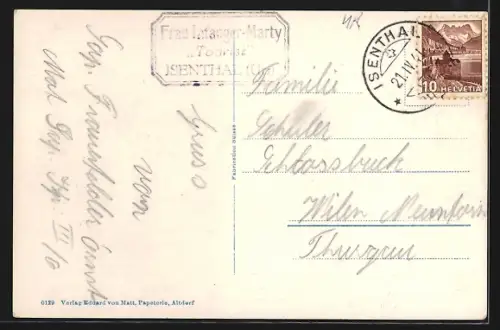 Frau Infanger-Marty
„Tourist“
ISENTHAL (Uri)
ISENTHAL
21.IV.4
10 HELVETIA
Gruss
von
Gfr. Frauenfelder Ernst
Mot. Kp. III/6
Familie
Schuler
Schlossbuck
Wilen Neunforn
Thurgau
Fabrication Suisse
6129 Verlag Eduard von Matt, Papeterie, Altdorf